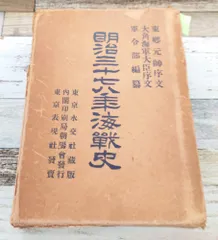 東郷元帥序文
大角海軍大臣序文
軍令部編纂
明治三十七八年海戦史
東京水交社蔵版
内閣印刷局朝陽會発行
東京表現社発賣